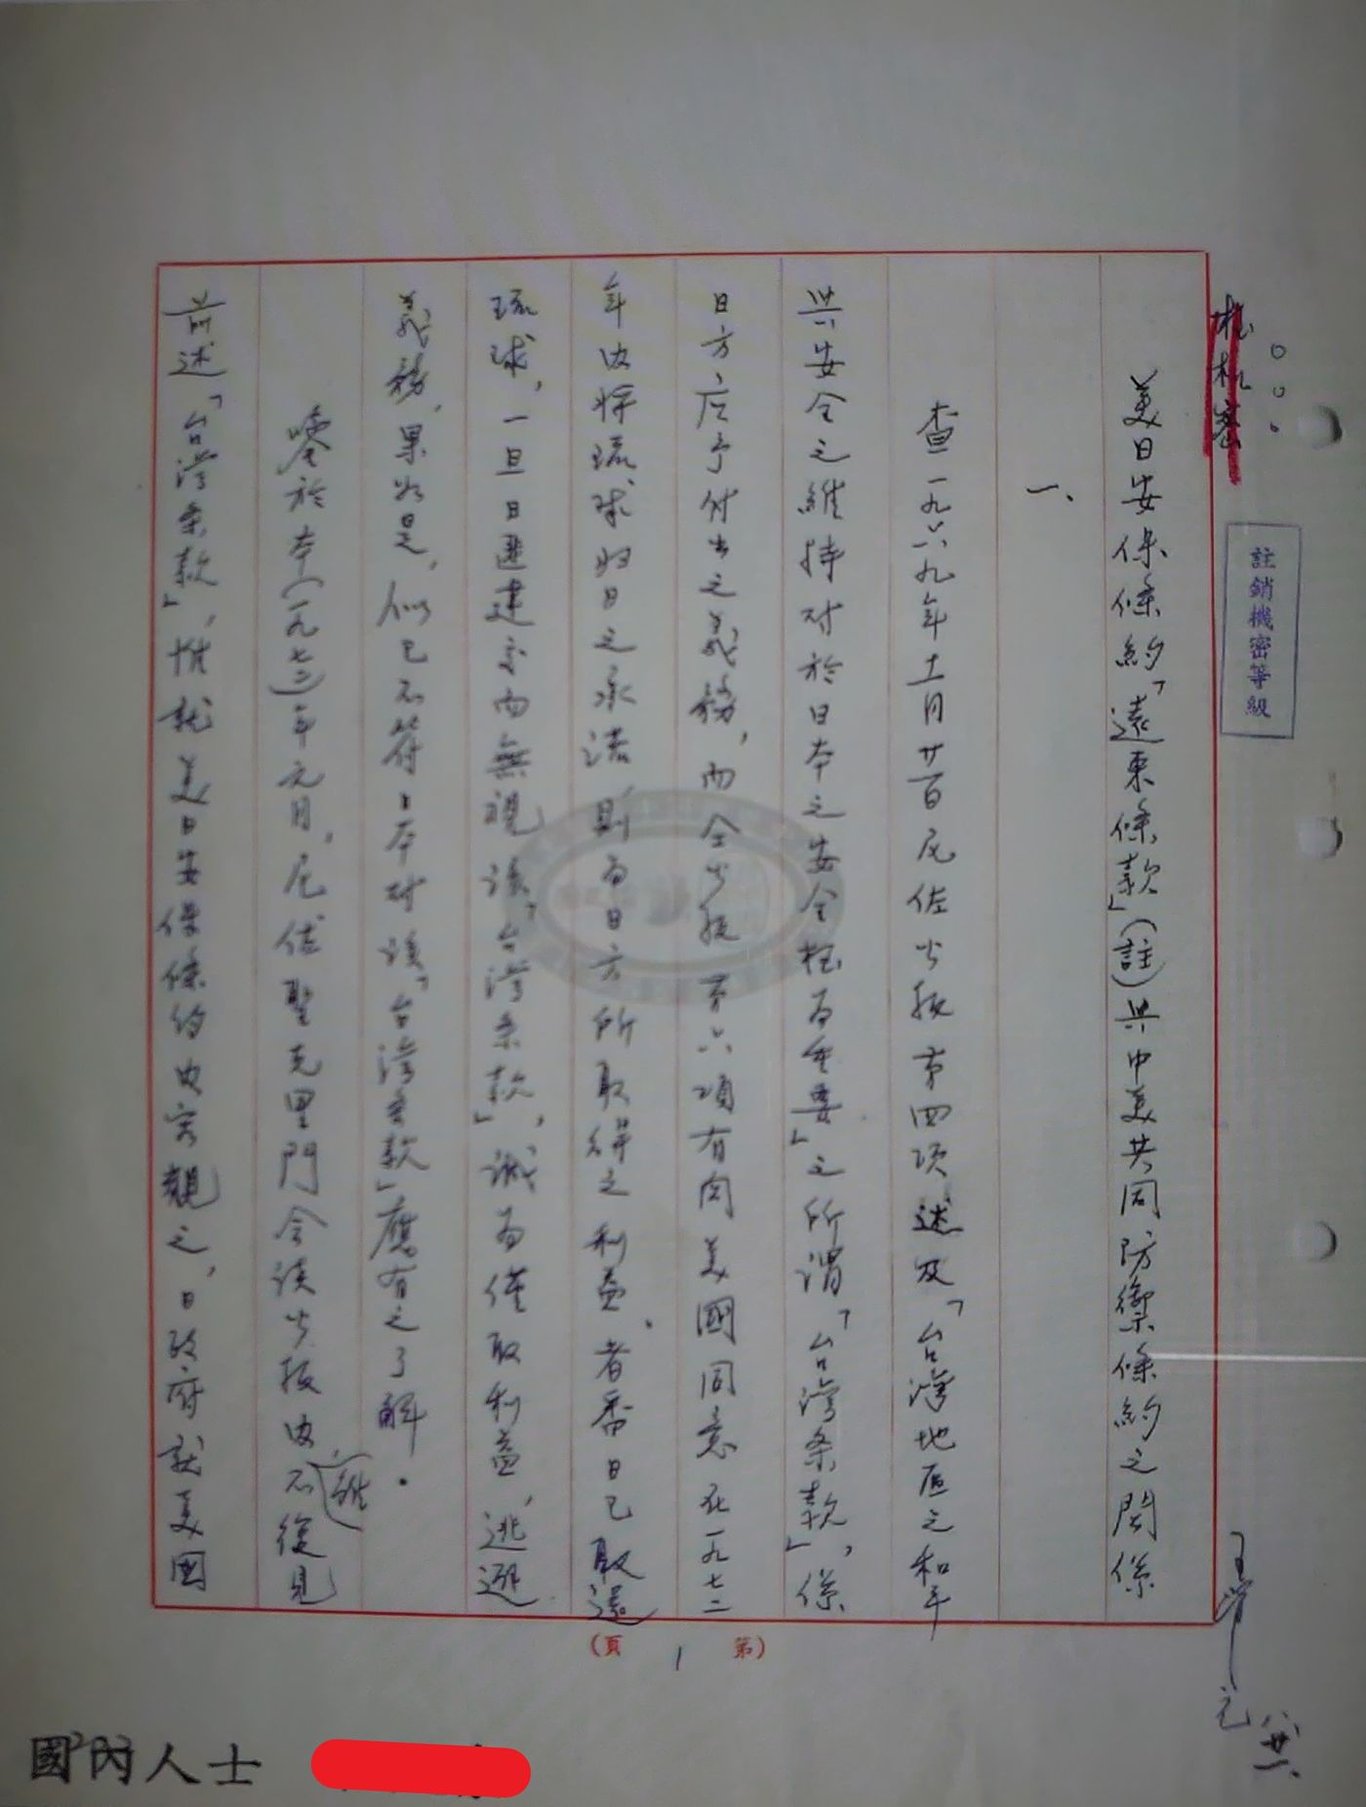 極机密
註銷機密等級
美日安保條約「遠東條款」(註)與中美共同防禦條約之關係
一、
查一九六九年十一月廿一日尼佐公報第四項述及「台灣地區之和平
與安全之維持对於日本之安全極為重要」之所謂「台灣条款」，係
日方应予付出之義務，而全公报第六項有関美國同意在一九七二
年内將琉球归日之承诺則為日方所取得之利益。若番日已取還
琉球，一旦日匪建交而無視該「台灣条款」，诚為僅取利益，逃避
義務，果如是，似已不符日本对該「台灣条款」應有之了解。
於本(一九七二)年元月，尼佐聖克里門会談公报内不復見
雖
前述「台灣条款」，惟就美日安保條約内容觀之，日政府就美國
(頁 1 第)
元
國內人士